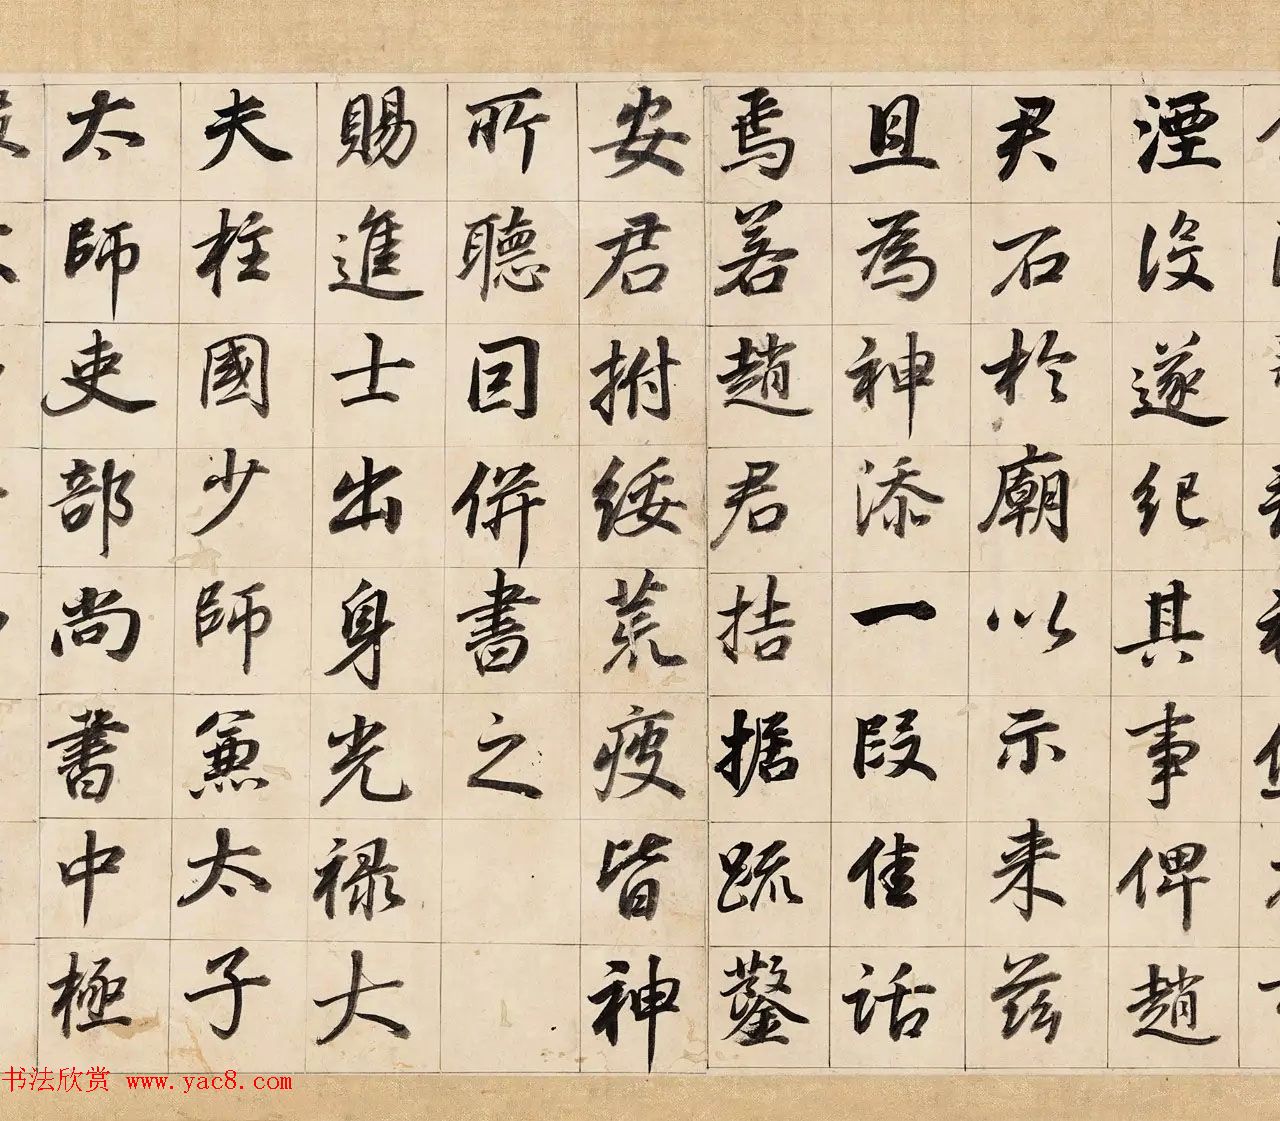 湮没遂纪其事俾趙
君石於廟以示来茲
且為神添一段佳話
焉若趙君拮据疏鑿
安君拊綏荒疫皆神
所聽因併書之
賜進士出身光禄大
夫柱國少師兼太子
太師吏部尚書中極
书法欣赏 www.yac8.com